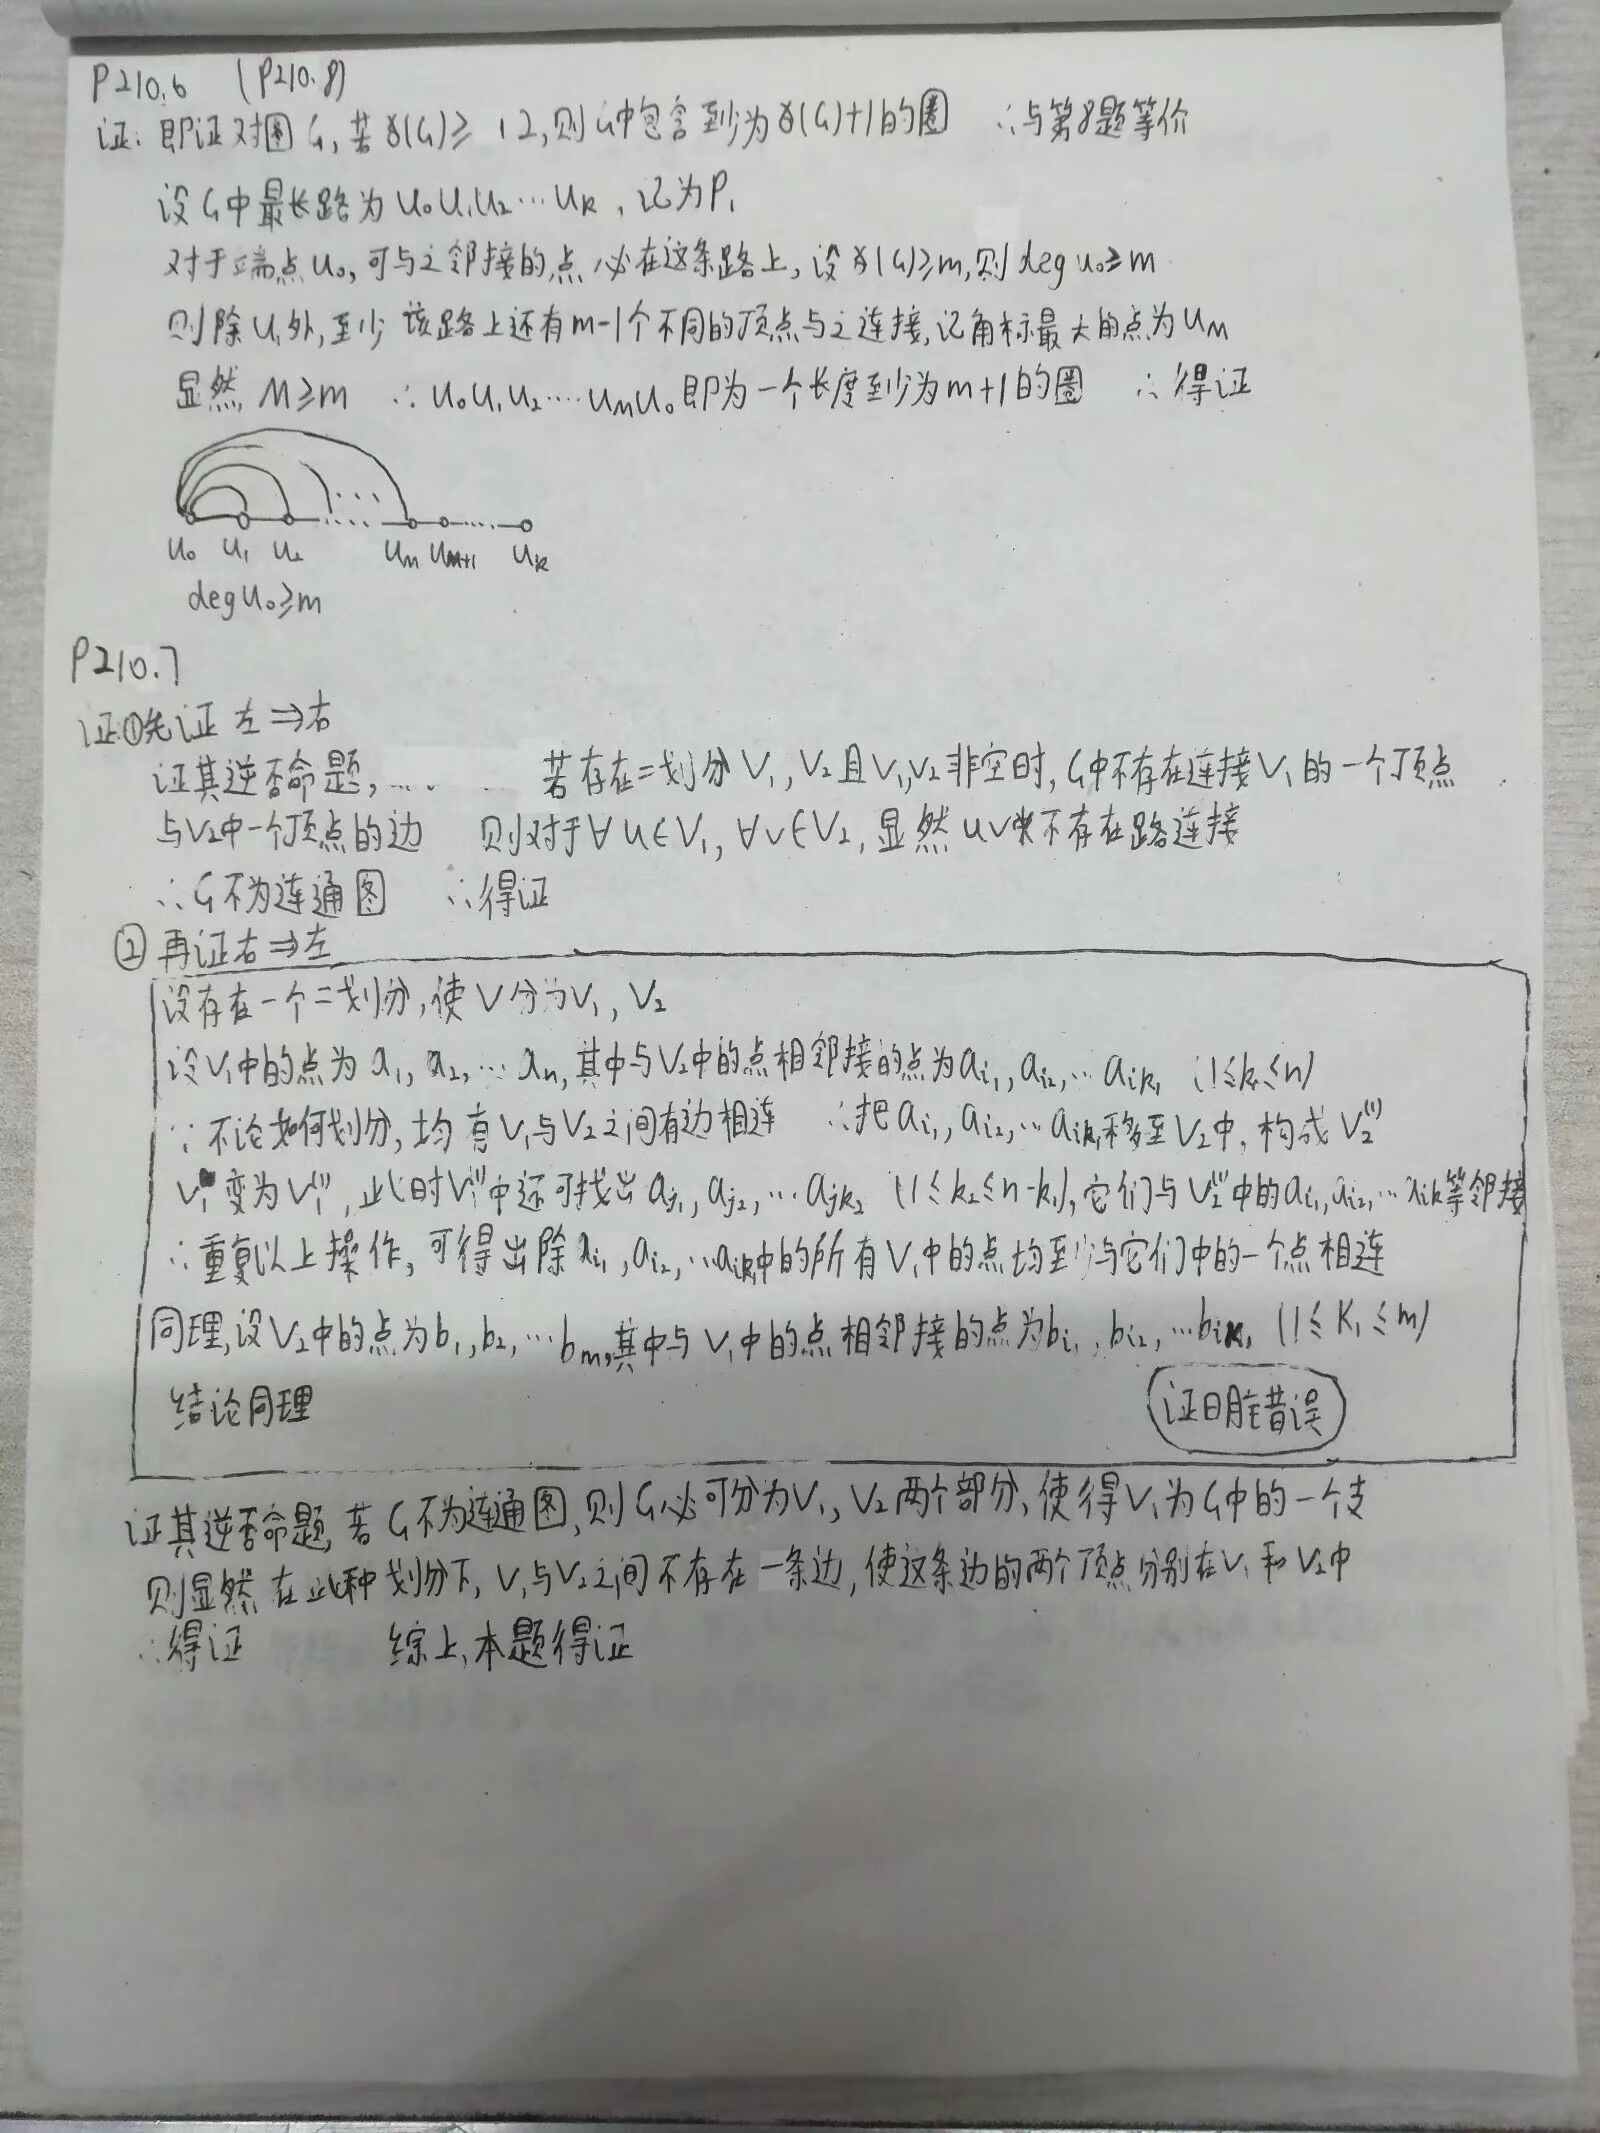 P210.6 (P210.8)
证: 即证对图G, 若δ(G)≥ 12,则G中包含至少为δ(G)+1的圈 ∴与第8题等价
设G中最长路为u₀u₁u₂…uₖ, 记为P₁
对于端点u₀, 可与之邻接的点必在这条路上, 设δ(G)≥m,则deg u₀≥m
则除u₁外,至少该路上还有m-1个不同的顶点与之连接,记角标最大的点为u_M
显然, M≥m ∴u₀u₁u₂……u_Mu₀即为一个长度至少为m+1的圈 ∴得证
u₀ u₁ u₂ u_M u_M+1 uₖ
deg u₀≥m
P210.7
证:①先证 左⇒右
证其逆否命题, …… 若存在二划分V₁, V₂且V₁,V₂非空时, G中不存在连接V₁的一个顶点
与V₂中一个顶点的边 则对于∀u∈V₁, ∀v∈V₂, 显然uv不存在路连接
∴G不为连通图 ∴得证
② 再证右⇒左
设存在一个二划分,使V分为V₁, V₂
设V₁中的点为a₁, a₂, …aₙ,其中与V₂中的点相邻接的点为aᵢ₁, aᵢ₂, …aᵢₖ₁ (1≤k₁≤n)
∵不论如何划分, 均有V₁与V₂之间有边相连 ∴把aᵢ₁, aᵢ₂, …aᵢₖ₁移至V₂中, 构成V₂⁽¹⁾
V₁变为V₁⁽¹⁾, 此时V₁⁽¹⁾中还可找出aⱼ₁, aⱼ₂, …aⱼₖ₂ (1≤k₂≤n-k₁),它们与V₂⁽¹⁾中的aᵢ₁, aᵢ₂, …aᵢₖ等邻接
∴重复以上操作, 可得出除aᵢ₁, aᵢ₂, …aᵢₖ₁中的所有V₁中的点均至少与它们中的一个点相连
同理,设V₂中的点为b₁, b₂, …bₘ,其中与V₁中的点相邻接的点为bᵢ₁, bᵢ₂, …bᵢₖ₁ (1≤K₁≤m)
结论同理 证明错误
证其逆否命题,若G不为连通图,则G必可分为V₁, V₂两个部分,使得V₁为G中的一个支
则显然在此种划分下, V₁与V₂之间不存在一条边,使这条边的两个顶点分别在V₁和V₂中
∴得证 综上,本题得证